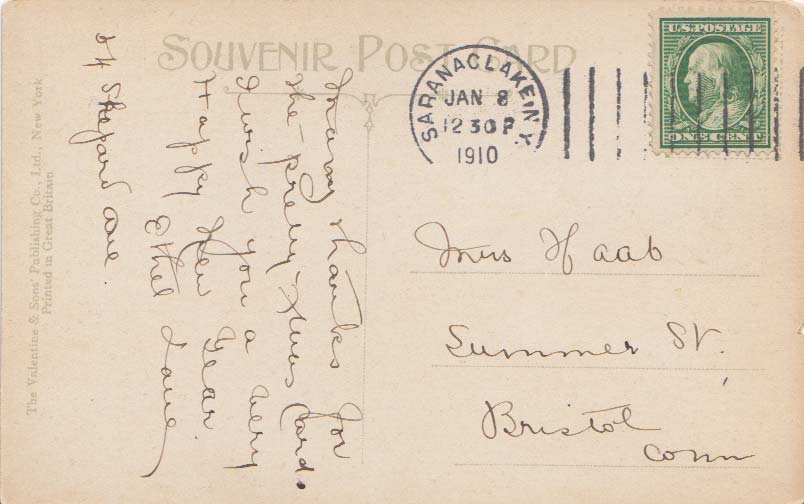 SOUVENIR POST CARD
The Valentine & Sons' Publishing Co., Ltd., New York
Printed in Great Britain
Many thanks for
the pretty Xmas Card.
I wish you a very
Happy New Year.
Ethel Lane
54 Shepard Ave.
SARANAC LAKE, N.Y.
JAN 8
12 30 P
1910
U.S. POSTAGE
ONE CENT
Miss Haab
Summer St.
Bristol
Conn